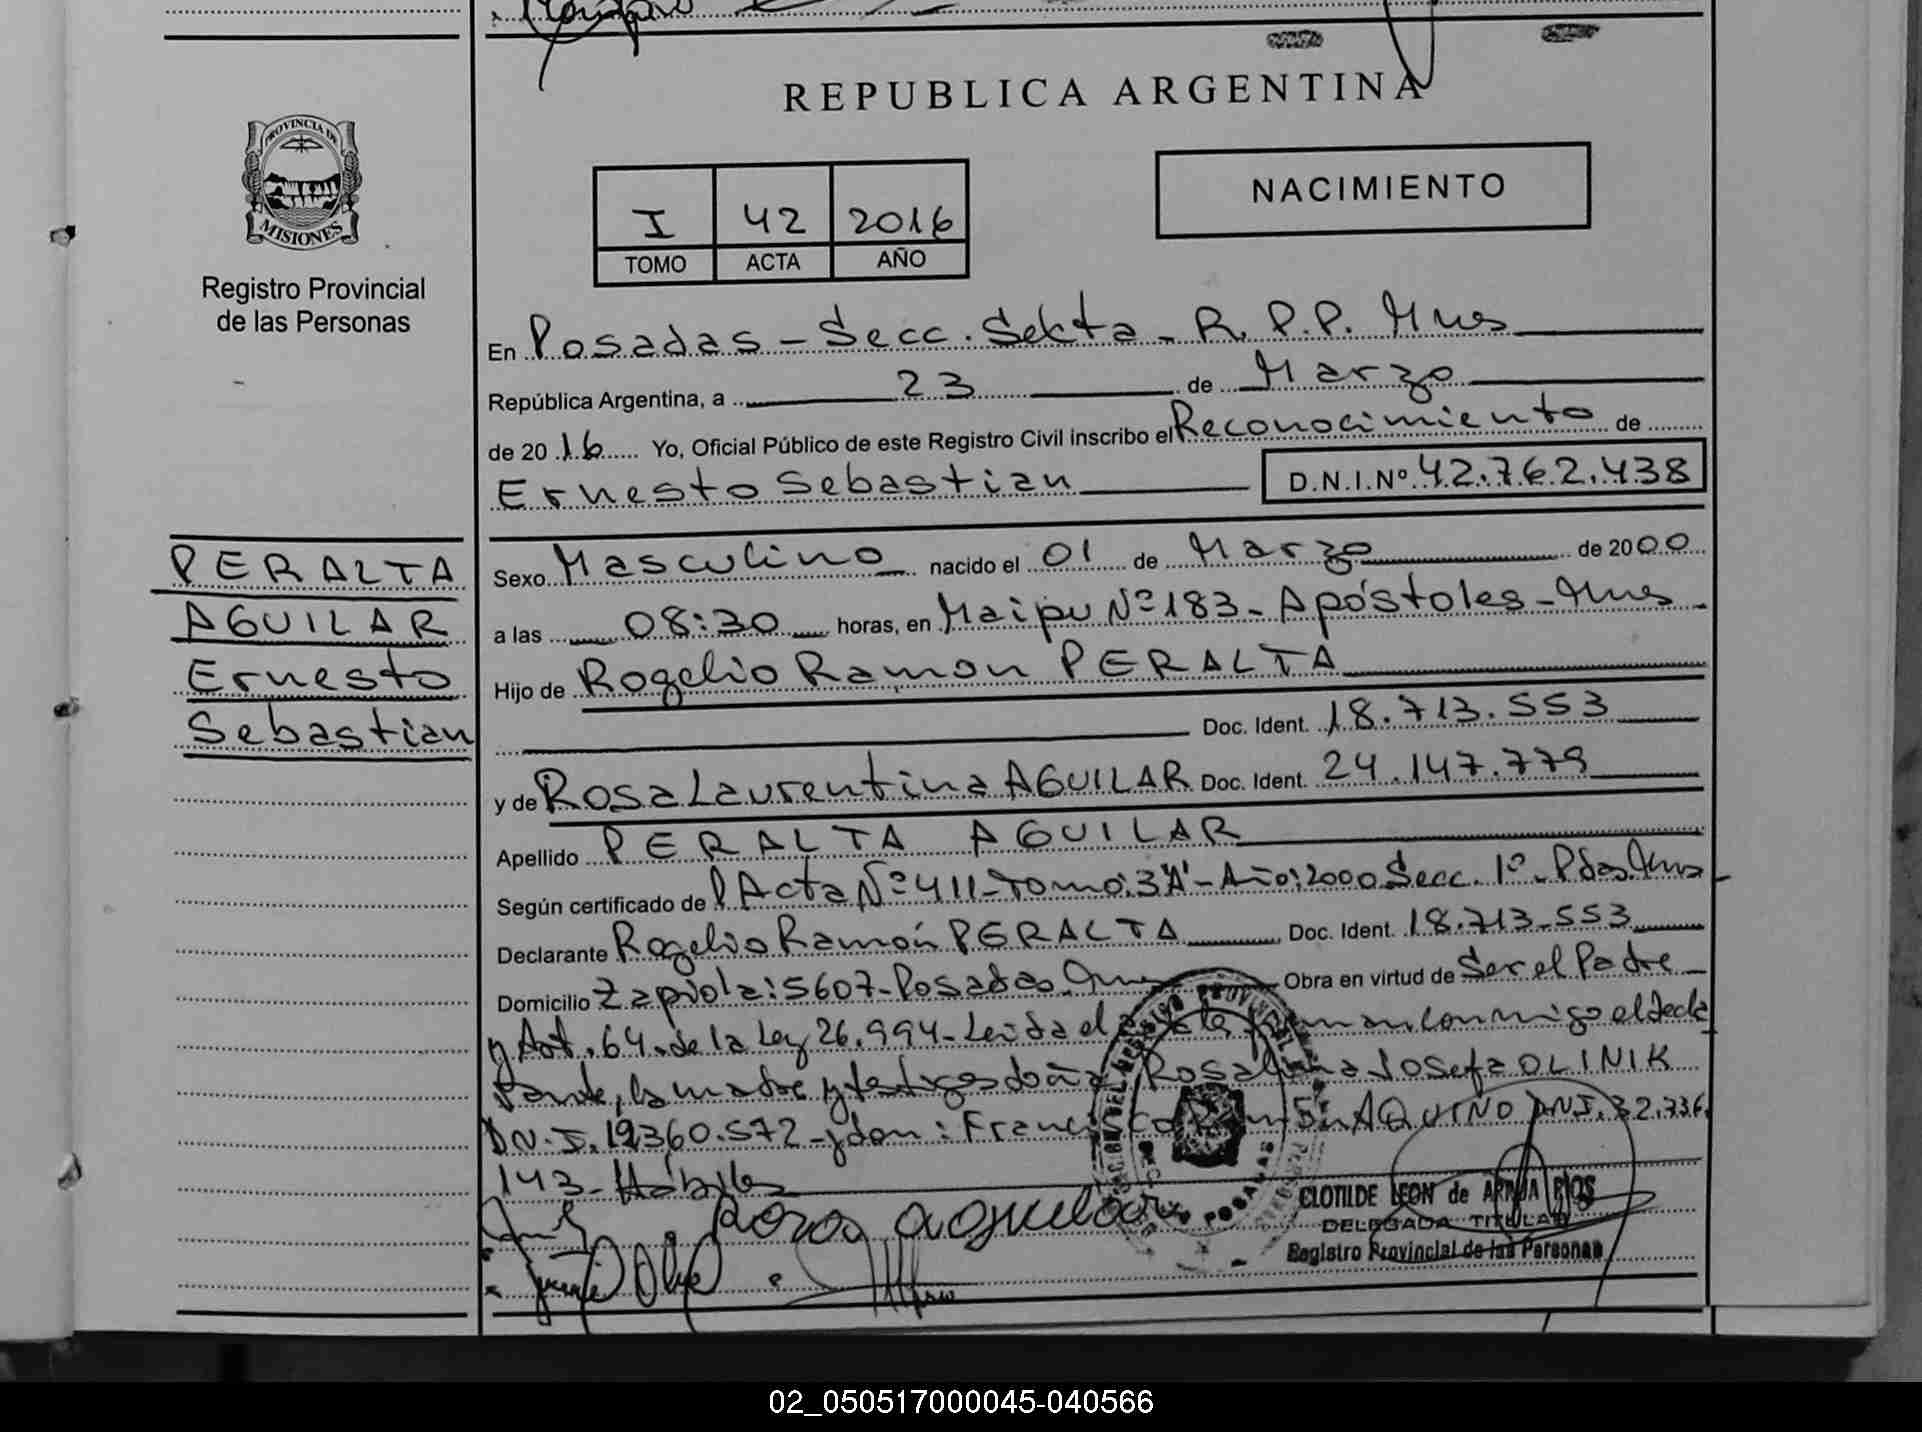 REPUBLICA ARGENTINA
PROVINCIA DE
MISIONES
Registro Provincial
de las Personas
I 42 2016
TOMO ACTA AÑO
NACIMIENTO
En Posadas - Secc. Sekta - R.P.P. Mnes
República Argentina, a 23 de Marzo
de 2016 Yo, Oficial Público de este Registro Civil inscribo el Reconocimiento de
Ernesto Sebastian D.N.I.Nº 42.762.438
PERALTA
AGUILAR
Ernesto
Sebastian
Sexo Masculino nacido el 01 de Marzo de 2000
a las 08:30 horas, en Maipu Nº 183 - Apóstoles - Mnes -
Hijo de Rogelio Ramon PERALTA
Doc. Ident. 18.713.553
y de Rosa Laurentina AGUILAR Doc. Ident. 24.147.779
Apellido PERALTA AGUILAR
Según certificado de Acta Nº 411 - Tomo: 3"A" - Año: 2000 Secc. 1º - Pdas. Mns -
Declarante Rogelio Ramón PERALTA Doc. Ident. 18.713.553
Domicilio Zapiola: 5607 - Posadas - Obra en virtud de Ser el Padre -
y Art. 64 - de la Ley 26.994 - Leida el firman conmigo el decla
rante, la madre y testigos doña Josefa OLINIK
D.N.I. 12360.572 - y don: Francisco AQUINO DNI. 32.736.
143 - Hábiles
Rosa aguilar
CLOTILDE LEON de ARRUA RIOS
DELEGADA TITULAR
Registro Provincial de las Personas
02_050517000045-040566